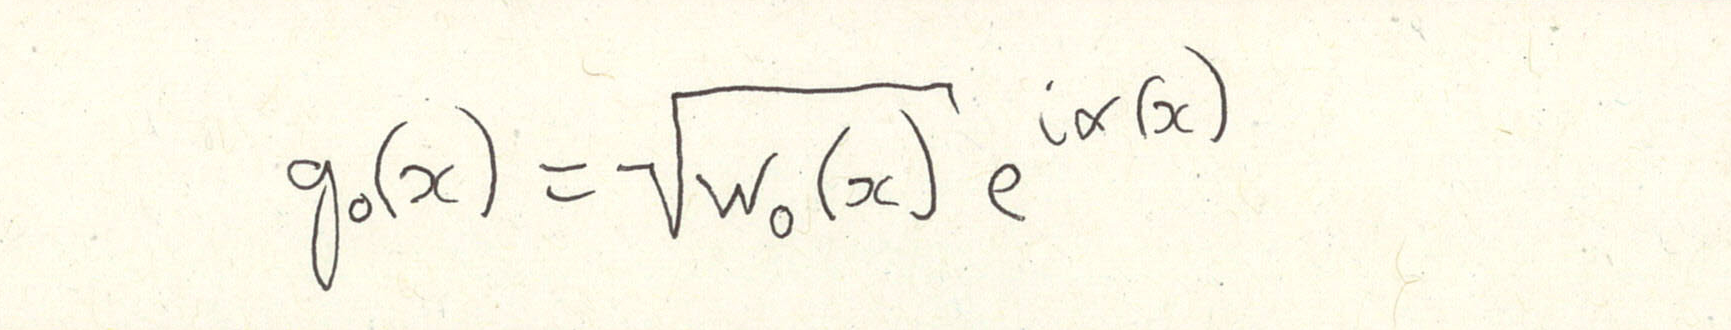 g₀(x) = √w₀(x) e^{iα(x)}